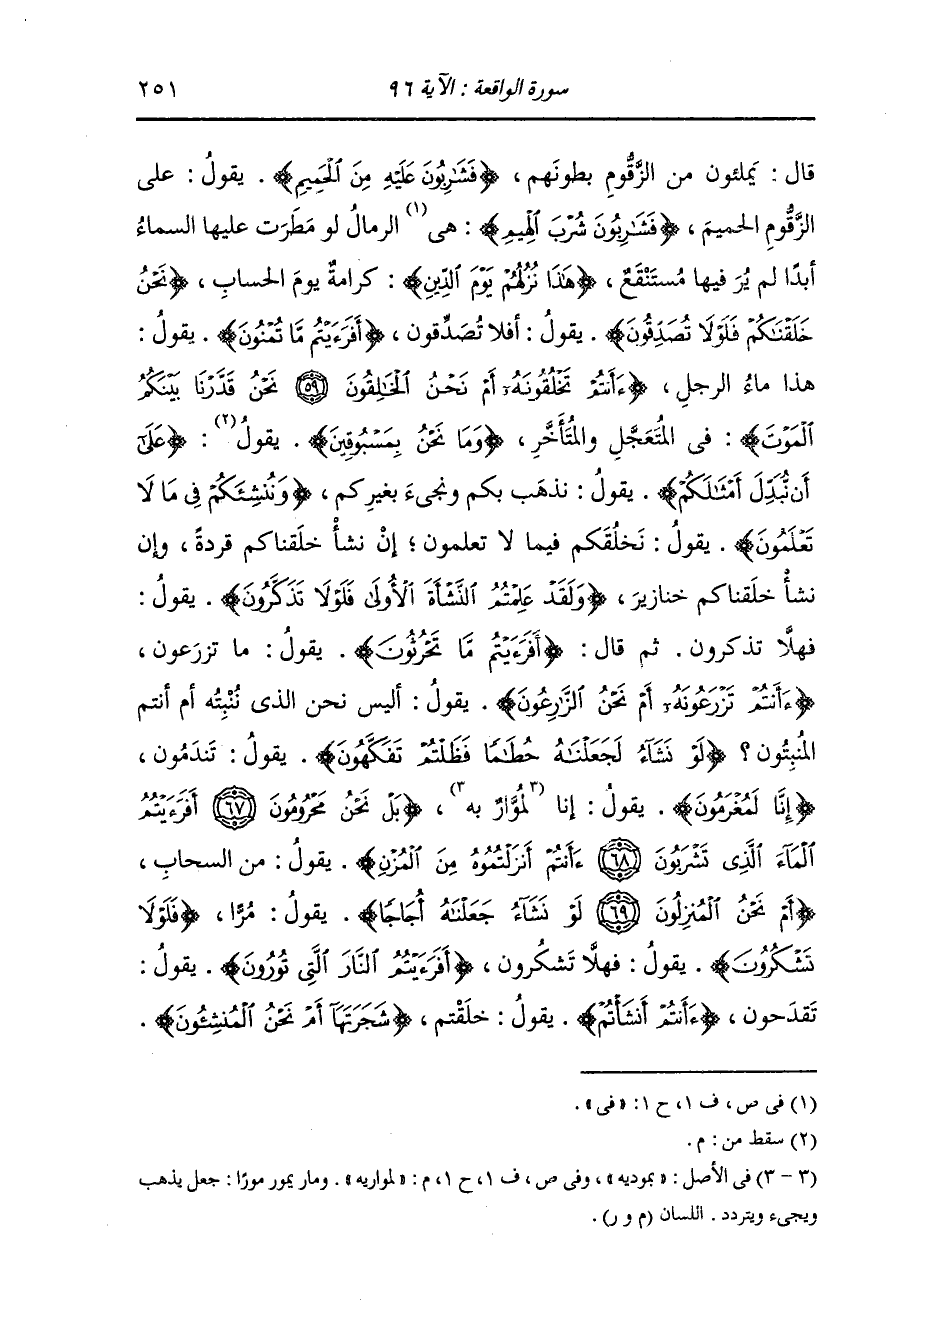 سورة الواقعة : الآية ٩٦ ٢٥١
قال : يَملئون من الزَّقُّومِ بطونَهم ، ﴿فَشَٰرِبُونَ عَلَيْهِ مِنَ ٱلْحَمِيمِ﴾ . يقولُ : على
الزَّقُّومِ الحميمَ ، ﴿فَشَٰرِبُونَ شُرْبَ ٱلْهِيمِ﴾ : هى(١) الرمالُ لو مَطَرَت عليها السماءُ
أبدًا لم يُرَ فيها مُستَنْقَعٌ ، ﴿هَٰذَا نُزُلُهُمْ يَوْمَ ٱلدِّينِ﴾ : كرامةٌ يومَ الحسابِ ، ﴿نَحْنُ
خَلَقْنَٰكُمْ فَلَوْلَا تُصَدِّقُونَ﴾ . يقولُ : أفلا تُصَدِّقون ، ﴿أَفَرَءَيْتُم مَّا تُمْنُونَ﴾ . يقولُ :
هذا ماءُ الرجلِ ، ﴿ءَأَنتُمْ تَخْلُقُونَهُۥٓ أَمْ نَحْنُ ٱلْخَٰلِقُونَ ۝٥٩ نَحْنُ قَدَّرْنَا بَيْنَكُمُ
ٱلْمَوْتَ﴾ : فى المُتَعَجِّلِ والمُتَأَخِّرِ ، ﴿وَمَا نَحْنُ بِمَسْبُوقِينَ﴾ . يقولُ(٢) : ﴿عَلَىٰٓ
أَن نُّبَدِّلَ أَمْثَٰلَكُمْ﴾ . يقولُ : نذهَب بكم ونجىءَ بغيرِكم ، ﴿وَنُنشِئَكُمْ فِى مَا لَا
تَعْلَمُونَ﴾ . يقولُ : نَخلُقَكم فيما لا تعلمون ؛ إنْ نشأْ خلَقناكم قردةً ، وإن
نشأْ خلَقناكم خنازيرَ ، ﴿وَلَقَدْ عَلِمْتُمُ ٱلنَّشْأَةَ ٱلْأُولَىٰ فَلَوْلَا تَذَكَّرُونَ﴾ . يقولُ :
فهلَّا تذكرون . ثم قال : ﴿أَفَرَءَيْتُم مَّا تَحْرُثُونَ﴾ . يقولُ : ما تزرَعون ،
﴿ءَأَنتُمْ تَزْرَعُونَهُۥٓ أَمْ نَحْنُ ٱلزَّٰرِعُونَ﴾ . يقولُ : أليس نحن الذى نُنْبِتُه أم أنتم
المُنبِتُون ؟ ﴿لَوْ نَشَآءُ لَجَعَلْنَٰهُ حُطَٰمًا فَظَلْتُمْ تَفَكَّهُونَ﴾ . يقولُ : تَندَمُون ،
﴿إِنَّا لَمُغْرَمُونَ﴾ . يقولُ : إنا (٣لمُوَّارٌ به٣) ، ﴿بَلْ نَحْنُ مَحْرُومُونَ ۝٦٧ أَفَرَءَيْتُمُ
ٱلْمَآءَ ٱلَّذِى تَشْرَبُونَ ۝٦٨ ءَأَنتُمْ أَنزَلْتُمُوهُ مِنَ ٱلْمُزْنِ﴾ . يقولُ : من السحابِ ،
﴿أَمْ نَحْنُ ٱلْمُنزِلُونَ ۝٦٩ لَوْ نَشَآءُ جَعَلْنَٰهُ أُجَاجًا﴾ . يقولُ : مُرًّا ، ﴿فَلَوْلَا
تَشْكُرُونَ﴾ . يقولُ : فهلَّا تَشكُرون ، ﴿أَفَرَءَيْتُمُ ٱلنَّارَ ٱلَّتِى تُورُونَ﴾ . يقولُ :
تَقدَحون ، ﴿ءَأَنتُمْ أَنشَأْتُمْ﴾ . يقولُ : خلَقْتم ، ﴿شَجَرَتَهَآ أَمْ نَحْنُ ٱلْمُنشِـُٔونَ﴾ .
(١) فى ص ، ف ١، ح ١: « فى » .
(٢) سقط من : م .
(٣ - ٣) فى الأصل : « بموديه » ، وفى ص ، ف ١، ح ١، م : « لمواريه » . ومار يمور مورًا : جعل يذهب
ويجىء ويتردد . اللسان (م و ر) .